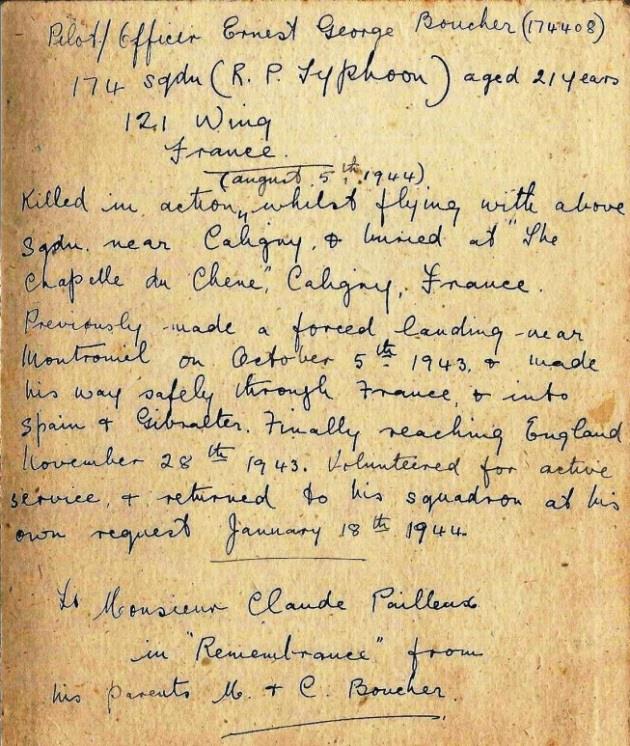 Pilot/Officer Ernest George Boucher (174408)
174 Sqdn (R. P. Typhoon) aged 21 years
121 Wing
France.
(August 5th, 1944)
Killed in action, whilst flying with above
Sqdn. near Caligny, & buried at "The
Chapelle du Chene", Caligny, France.
Previously made a forced landing near
on October 5th 1943, & made
his way safely through France, & into
Spain & Gibralter. Finally reaching England
November 28th 1943. Volunteered for active
service, & returned to his squadron at his
own request January 18th 1944.
To Monsieur Claude Pailleux
in "Remembrance" from
his parents M. & C. Boucher.